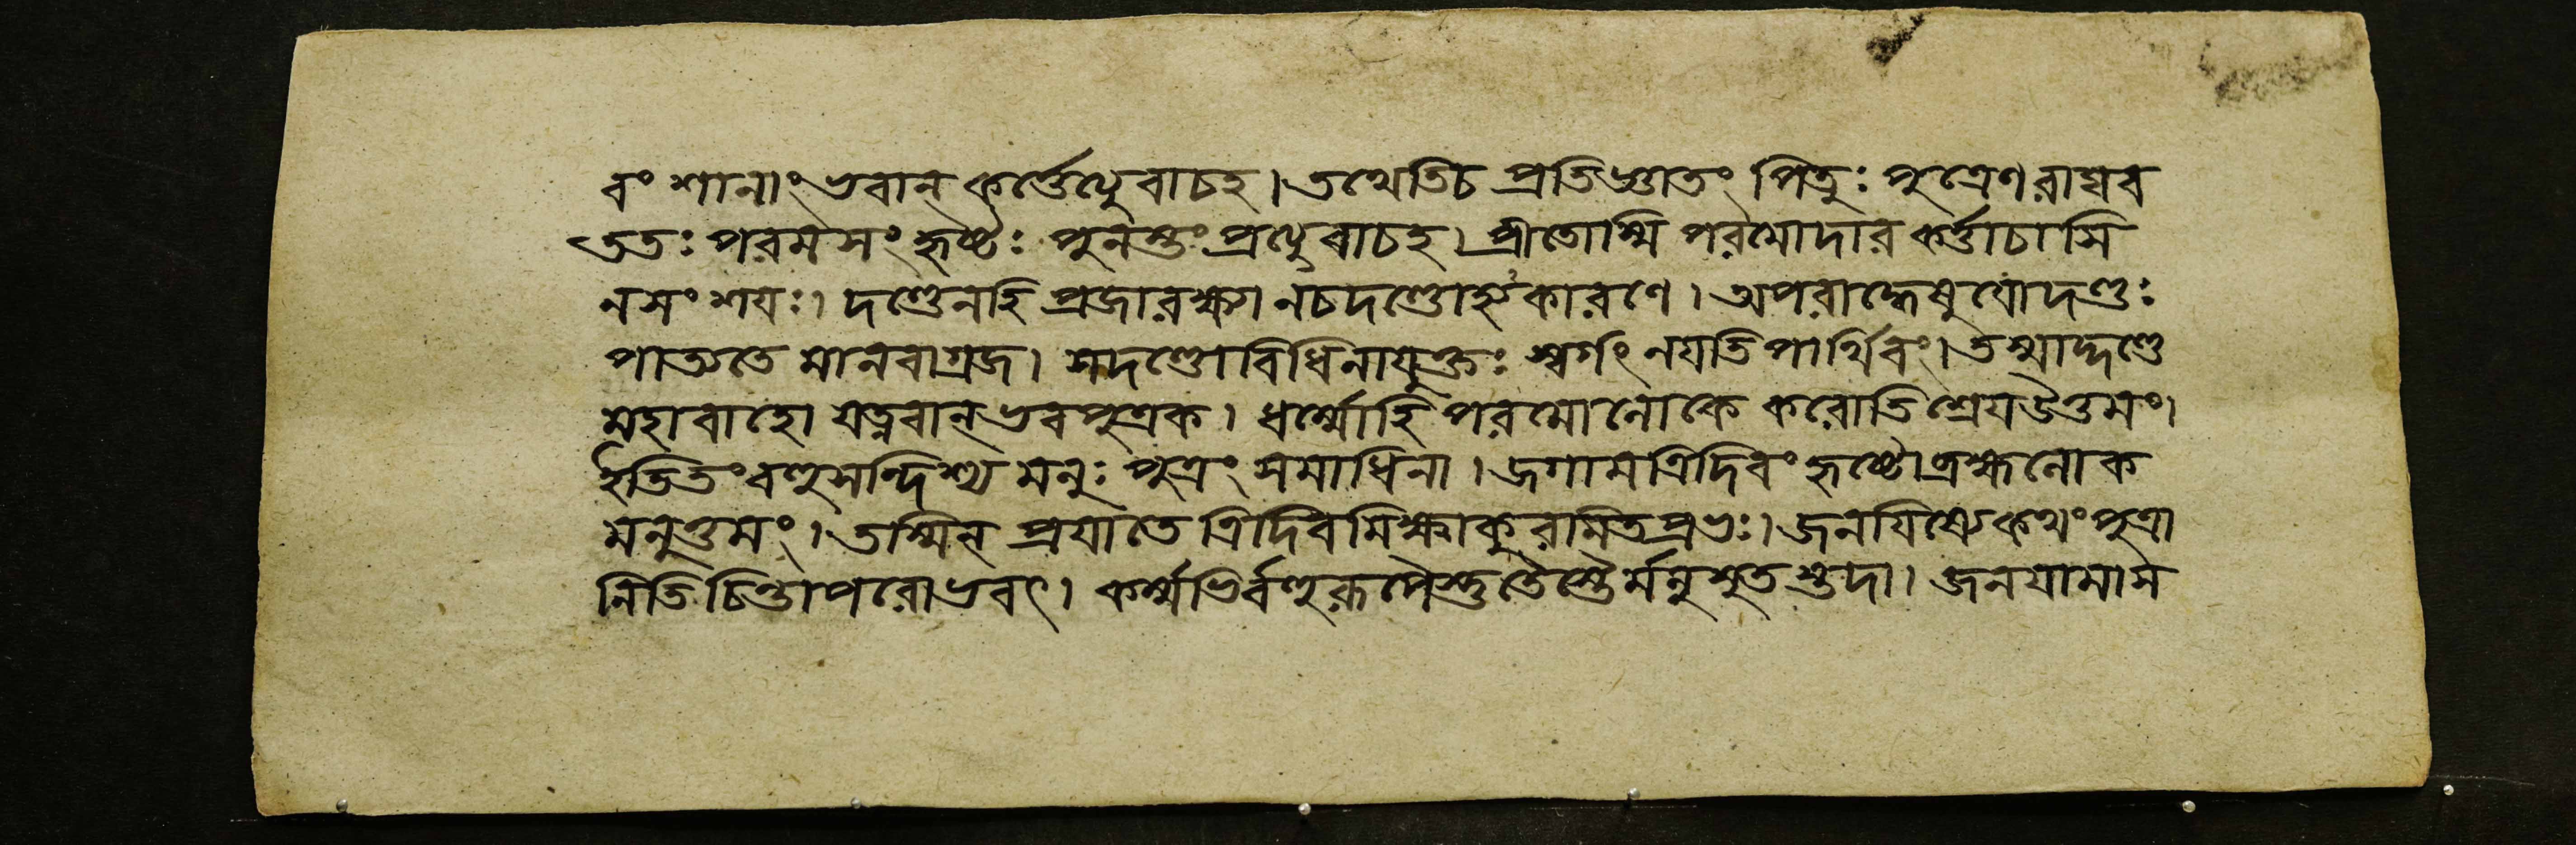 বংশানাং ভবান্ কর্ত্তেত্যুবাচহ। তথেতিচ প্রতিজ্ঞাতং পিতুঃ পুত্রেণ রাঘব
ততঃ পরমসংহৃষ্টঃ পুনস্তং প্রত্যুবাচহ। প্রীতোস্মি পরমোদার কর্ত্তাচাসি
নসংশযঃ। দণ্ডেনহি প্রজারক্ষ্যা নচদণ্ডোঽকারণে। অপরাদ্ধেষুযোদণ্ডঃ
পাত্যতে মানবাগ্রজ। সদণ্ডোবিধিনাযুক্তঃ স্বর্গং নযতি পার্থিবং। তস্মাদ্দণ্ডে
মহাবাহো যত্নবান্ ভবপুত্রক। ধর্ম্মোহি পরমোলোকে করোতি শ্রেযউত্তমং।
ইতিতং বহুসন্দিশ্য মনুঃ পুত্রং সমাধিনা। জগামত্রিদিবং হৃষ্টোব্রহ্মলোক
মনুত্তমং। তস্মিন্ প্রযাতে ত্রিদিবমিক্ষ্বাকুরমিতপ্রভঃ। জনযিষ্যেকথং পুত্রা
নিতি চিন্তাপরোভবৎ। কর্ম্মভির্বহুরূপৈস্তুতৈস্তৈর্মনুসুতস্তদা। জনযামাস